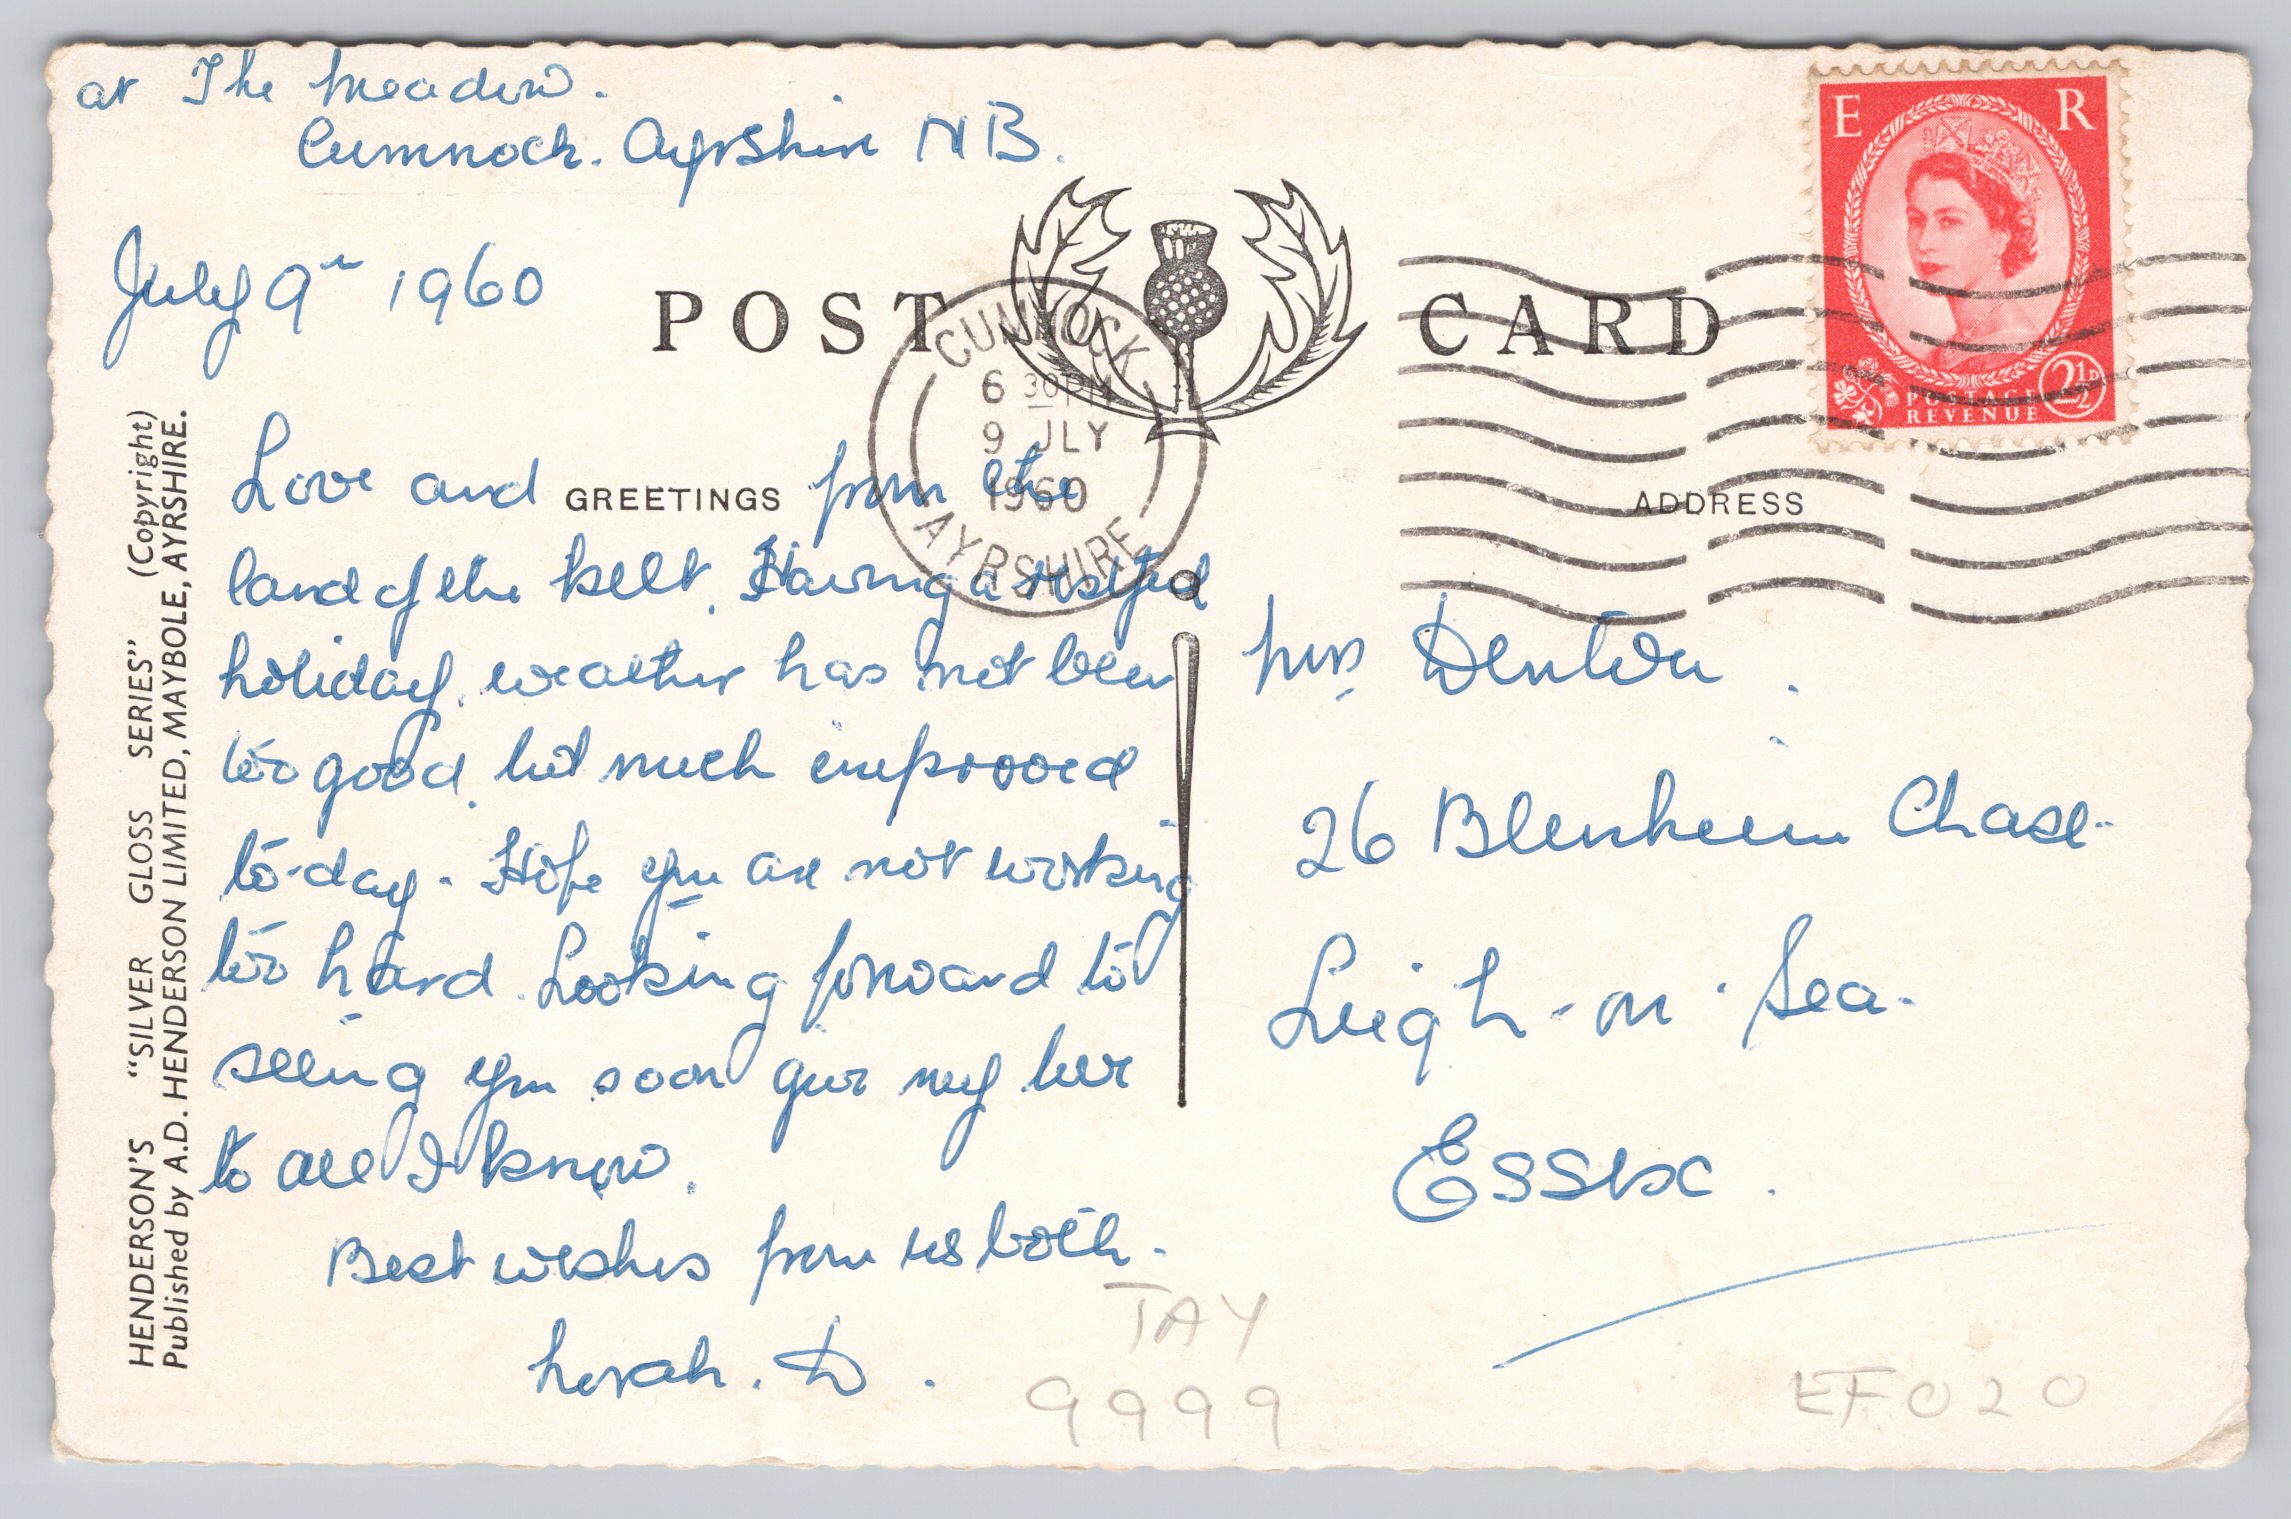 at The Meadow.
Cumnock. Ayrshire NB.
July 9th 1960
POST CARD
CUMNOCK
6 30PM
9 JLY
1960
AYRSHIRE
E R
POSTAGE
REVENUE
2½D
GREETINGS
ADDRESS
Love and from the
land of the kelt. Having a restful
holiday, weather has not been
too good, but much improved
to-day. Hope you are not working
too hard. Looking forward to
seeing you soon give my love
to all I know.
Best wishes from us both.
D.
Denton.
26 Blenheim Chase.
Leigh-on-Sea.
Essex.
HENDERSON'S "SILVER GLOSS SERIES" (Copyright)
Published by A.D. HENDERSON LIMITED, MAYBOLE, AYRSHIRE.
TAY
9999
EF020